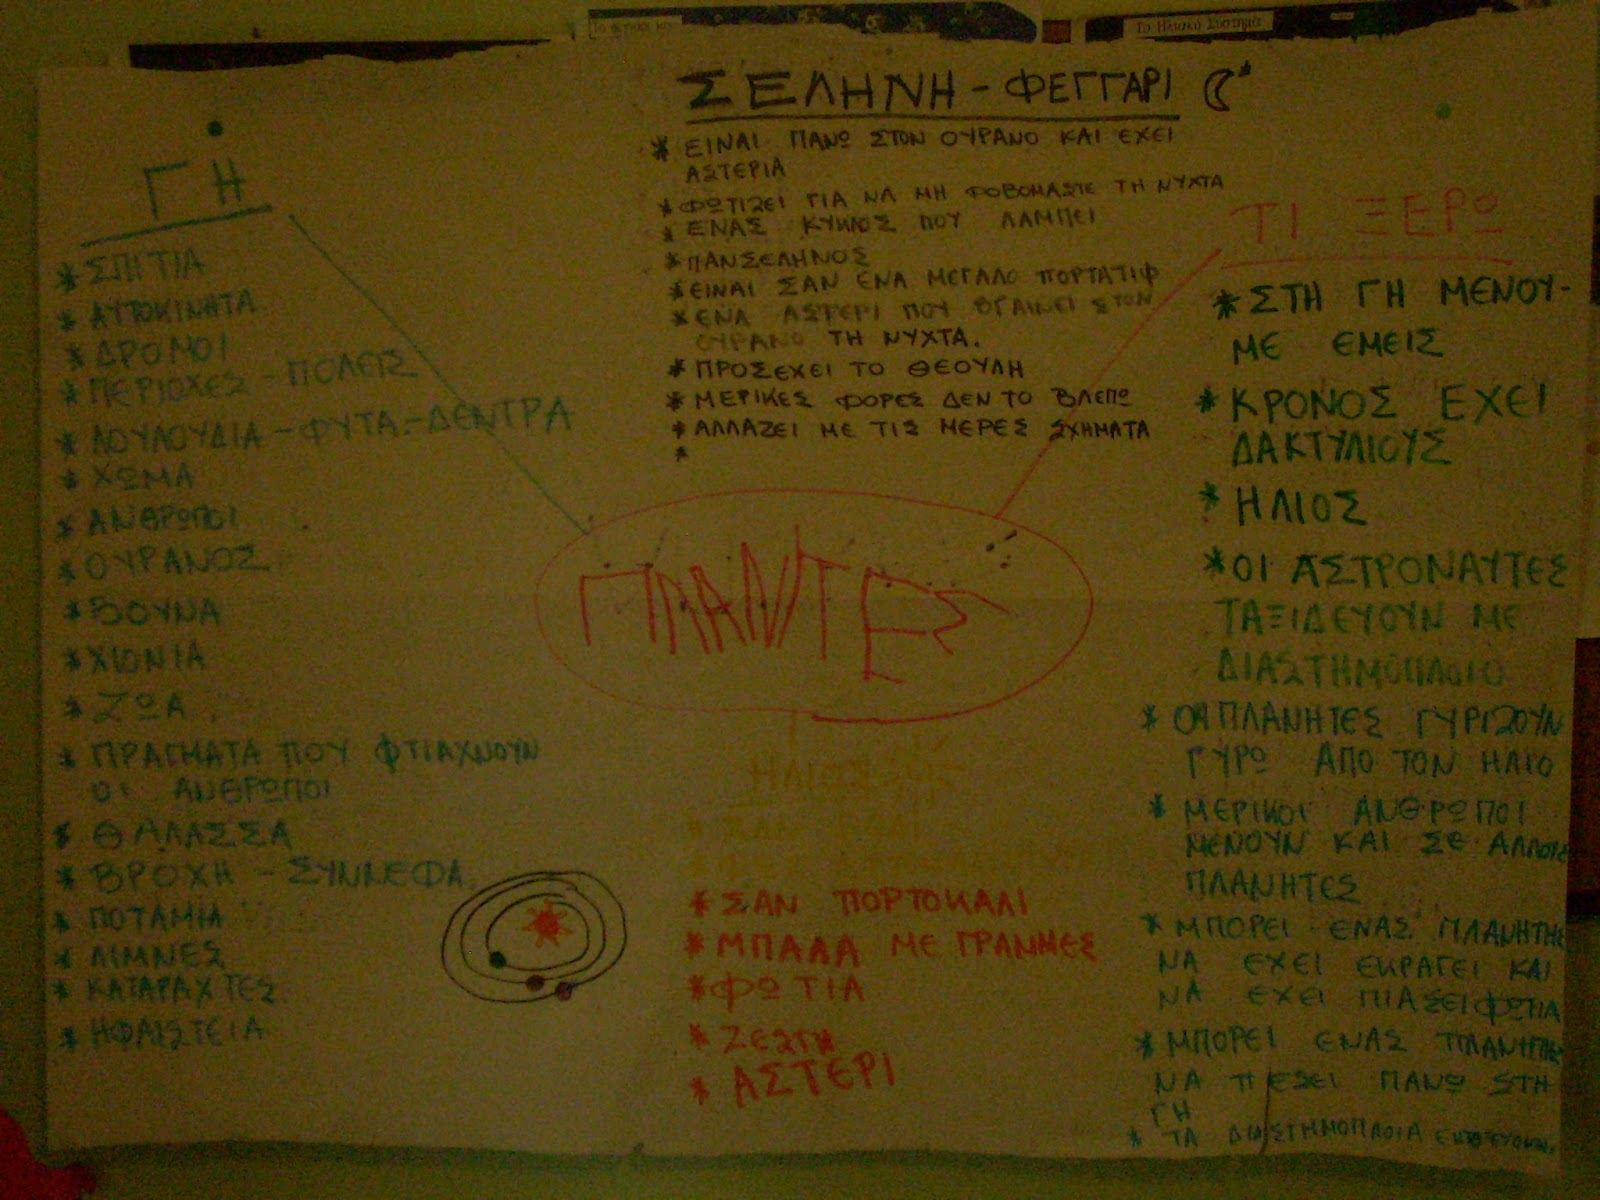 Το Ηλιακό Σύστημα
ΣΕΛΗΝΗ - ΦΕΓΓΑΡΙ
* ΕΙΝΑΙ ΠΑΝΩ ΣΤΟΝ ΟΥΡΑΝΟ ΚΑΙ ΕΧΕΙ
ΑΣΤΕΡΙΑ
* ΦΩΤΙΖΕΙ ΓΙΑ ΝΑ ΜΗ ΦΟΒΟΜΑΣΤΕ ΤΗ ΝΥΧΤΑ
* ΕΝΑΣ ΚΥΚΛΟΣ ΠΟΥ ΛΑΜΠΕΙ
* ΠΑΝΣΕΛΗΝΟΣ
* ΕΙΝΑΙ ΣΑΝ ΕΝΑ ΜΕΓΑΛΟ ΠΟΡΤΑΤΙΦ
* ΕΝΑ ΑΣΤΕΡΙ ΠΟΥ ΒΓΑΙΝΕΙ ΣΤΟΝ
ΟΥΡΑΝΟ ΤΗ ΝΥΧΤΑ.
* ΠΡΟΣΕΧΕΙ ΤΟ ΘΕΟΥΛΗ
* ΜΕΡΙΚΕΣ ΦΟΡΕΣ ΔΕΝ ΤΟ ΒΛΕΠΩ
* ΑΛΛΑΖΕΙ ΜΕ ΤΙΣ ΜΕΡΕΣ ΣΧΗΜΑΤΑ
*
ΓΗ
* ΣΠΙΤΙΑ
* ΑΥΤΟΚΙΝΗΤΑ
* ΔΡΟΜΟΙ
* ΠΕΡΙΟΧΕΣ - ΠΟΛΕΙΣ
* ΛΟΥΛΟΥΔΙΑ - ΦΥΤΑ - ΔΕΝΤΡΑ
* ΧΩΜΑ
* ΑΝΘΡΩΠΟΙ
* ΟΥΡΑΝΟΣ
* ΒΟΥΝΑ
* ΧΙΟΝΙΑ
* ΖΩΑ
* ΠΡΑΓΜΑΤΑ ΠΟΥ ΦΤΙΑΧΝΟΥΝ
ΟΙ ΑΝΘΡΩΠΟΙ
* ΘΑΛΑΣΣΑ
* ΒΡΟΧΗ - ΣΥΝΝΕΦΑ
* ΠΟΤΑΜΙΑ
* ΛΙΜΝΕΣ
* ΚΑΤΑΡΑΧΤΕΣ
* ΗΦΑΙΣΤΕΙΑ
ΠΛΑΝΤΕΣ
ΗΛΙΟΣ
* ΣΑΝ ΠΟΡΤΟΚΑΛΙ
* ΜΠΑΛΑ ΜΕ ΓΡΑΜΜΕΣ
* ΦΩΤΙΑ
* ΖΕΣΤΗ
* ΑΣΤΕΡΙ
ΤΙ ΞΕΡΩ
* ΣΤΗ ΓΗ ΜΕΝΟΥ-
ΜΕ ΕΜΕΙΣ
* ΚΡΟΝΟΣ ΕΧΕΙ
ΔΑΚΤΥΛΙΟΥΣ
* ΗΛΙΟΣ
* ΟΙ ΑΣΤΡΟΝΑΥΤΕΣ
ΤΑΞΙΔΕΥΟΥΝ ΜΕ
ΔΙΑΣΤΗΜΟΠΛΟΙΟ
* ΟΙ ΠΛΑΝΗΤΕΣ ΓΥΡΙΖΟΥΝ
ΓΥΡΩ ΑΠΟ ΤΟΝ ΗΛΙΟ
* ΜΕΡΙΚΟΙ ΑΝΘΡΩΠΟΙ
ΜΕΝΟΥΝ ΚΑΙ ΣΕ ΑΛΛΟΥΣ
ΠΛΑΝΗΤΕΣ
* ΜΠΟΡΕΙ ΕΝΑΣ ΠΛΑΝΗΤΗΣ
ΝΑ ΕΧΕΙ ΕΚΡΑΓΕΙ ΚΑΙ
ΝΑ ΕΧΕΙ ΠΙΑΣΕΙ ΦΩΤΙΑ
* ΜΠΟΡΕΙ ΕΝΑΣ ΠΛΑΝΗΤΗΣ
ΝΑ ΠΕΣΕΙ ΠΑΝΩ ΣΤΗ
ΓΗ
* ΤΑ ΔΙΑΣΤΗΜΟΠΛΟΙΑ